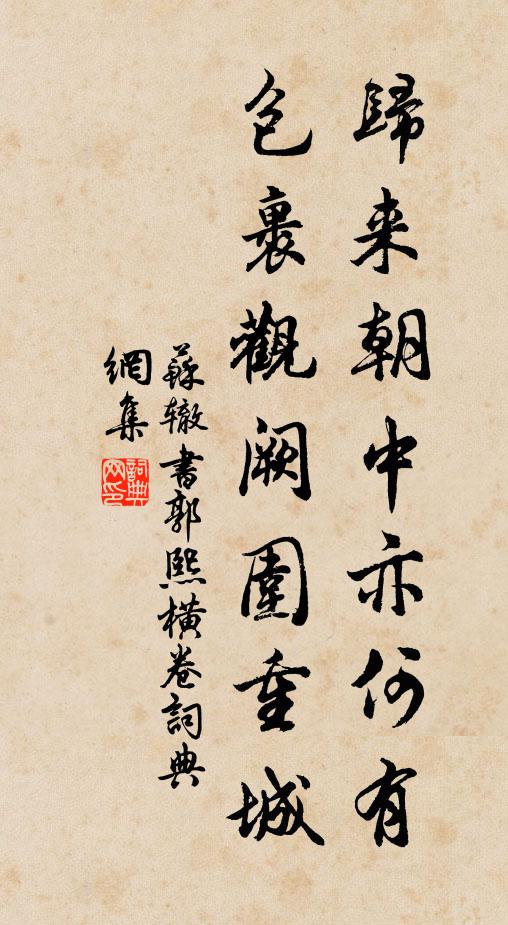 歸来朝中亦何有
包裹觀闕圍重城
蘇辙書郭熙橫卷詞典
網集
詞典网印